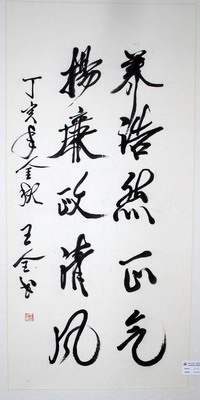 养浩然正气
揚廉政清风
丁亥年金秋
王金